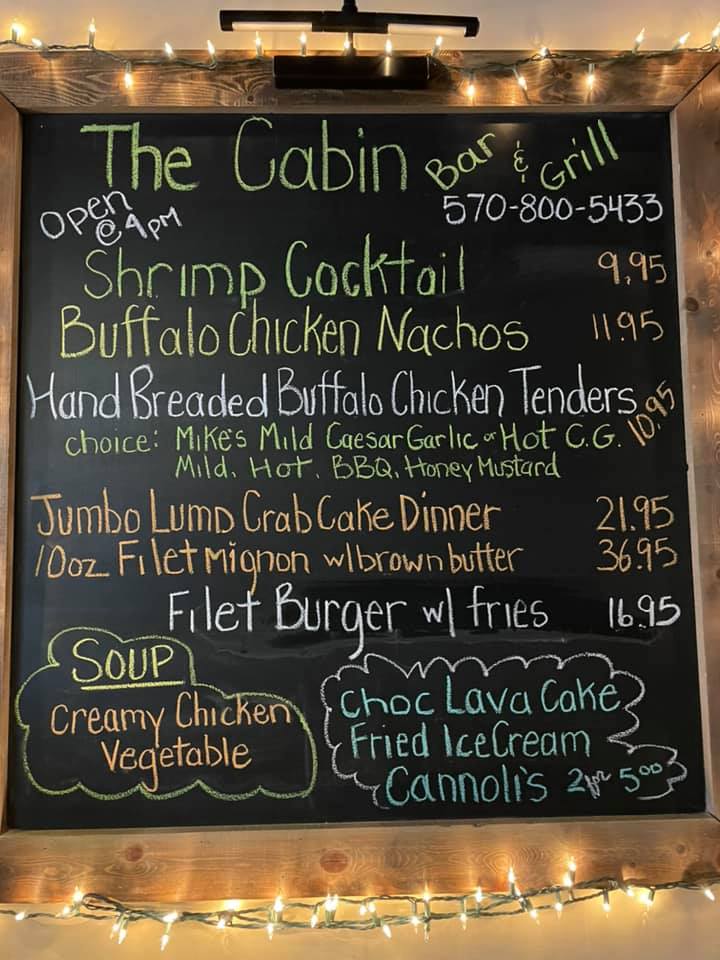 The Cabin Bar & Grill
Open @ 4pm
570-800-5433
Shrimp Cocktail 9.95
Buffalo Chicken Nachos 11.95
Hand Breaded Buffalo Chicken Tenders 10.95
choice: Mike's Mild Caesar Garlic or Hot C.G.
Mild, Hot, BBQ, Honey Mustard
Jumbo Lump Crab Cake Dinner 21.95
10oz Filet Mignon w/ brown butter 36.95
Filet Burger w/ fries 16.95
Soup
Creamy Chicken
Vegetable
Choc Lava Cake
Fried Ice Cream
Cannoli's 2 for 5.00